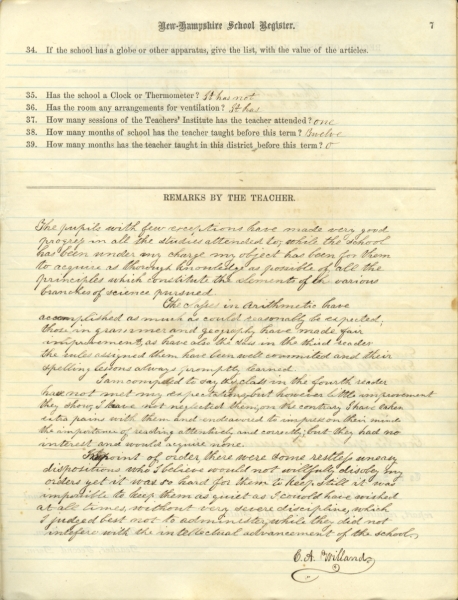 New-Hampshire School Register.
7
34. If the school has a globe or other apparatus, give the list, with the value of the articles.
35. Has the school a Clock or Thermometer? It has not
36. Has the room any arrangements for ventilation? It has
37. How many sessions of the Teachers' Institute has the teacher attended? one
38. How many months of school has the teacher taught before this term? Twelve
39. How many months has the teacher taught in this district before this term? 0
REMARKS BY THE TEACHER.
The pupils with few exceptions have made very good
progress in all the studies attended to, while the school
has been under my charge my object has been for them
to acquire as thorough knowledge as possible of all the
principles which constitute the elements of the various
branches of science pursued.
The classes in Arithmetic have
accomplished as much as could reasonably be expected;
those in grammer and geography have made fair
improvement, as have also the in the third reader
the rules assigned them have been well commited and their
spelling lessons always promptly learned.
I am compeled to say the class in the fourth reader
has not met my expectations, but however little improvement
they show, I have not neglected them, on the contrary I have taken
extra pains with them and endeavored to impress on their mind
the importance of reading attentively and correctly; but they had no
interest and would acquire none.
In point of order there were some restless uneasy
dispositions who I believe would not willfully disobey my
orders yet it was so hard for them to keep still it was
impossible to keep them as quiet as I could have wished
at all times, without very severe discipline, which
I judged best not to administer, while they did not
intefere with the intellectual advancement of the school.
C. A. Willand